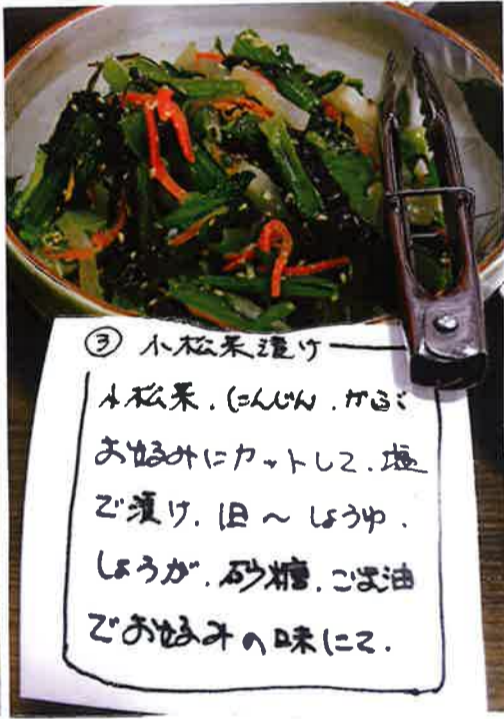 ③ 小松菜漬け
小松菜.にんじん.かぶを
お好みにカットして.塩
で漬け.1日〜しょうゆ.
しょうが.砂糖.ごま油
でお好みの味にて.